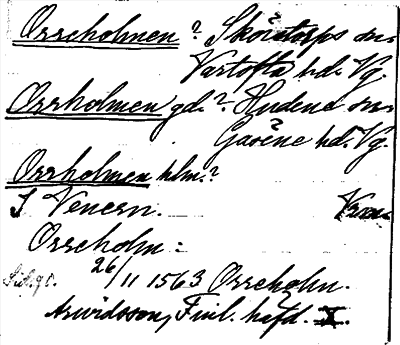 Orreholmen ? Sköstorps sn.
Vartofta hd. Vg.
Orrholmen gd. ? Hudene sn.
Gäsene hd. Vg.
Orrholmen hlm. ?
I Venern.
Orreholm :
26/11 1563 Orreholm.
Arwidsson, Finl. häfd. X.